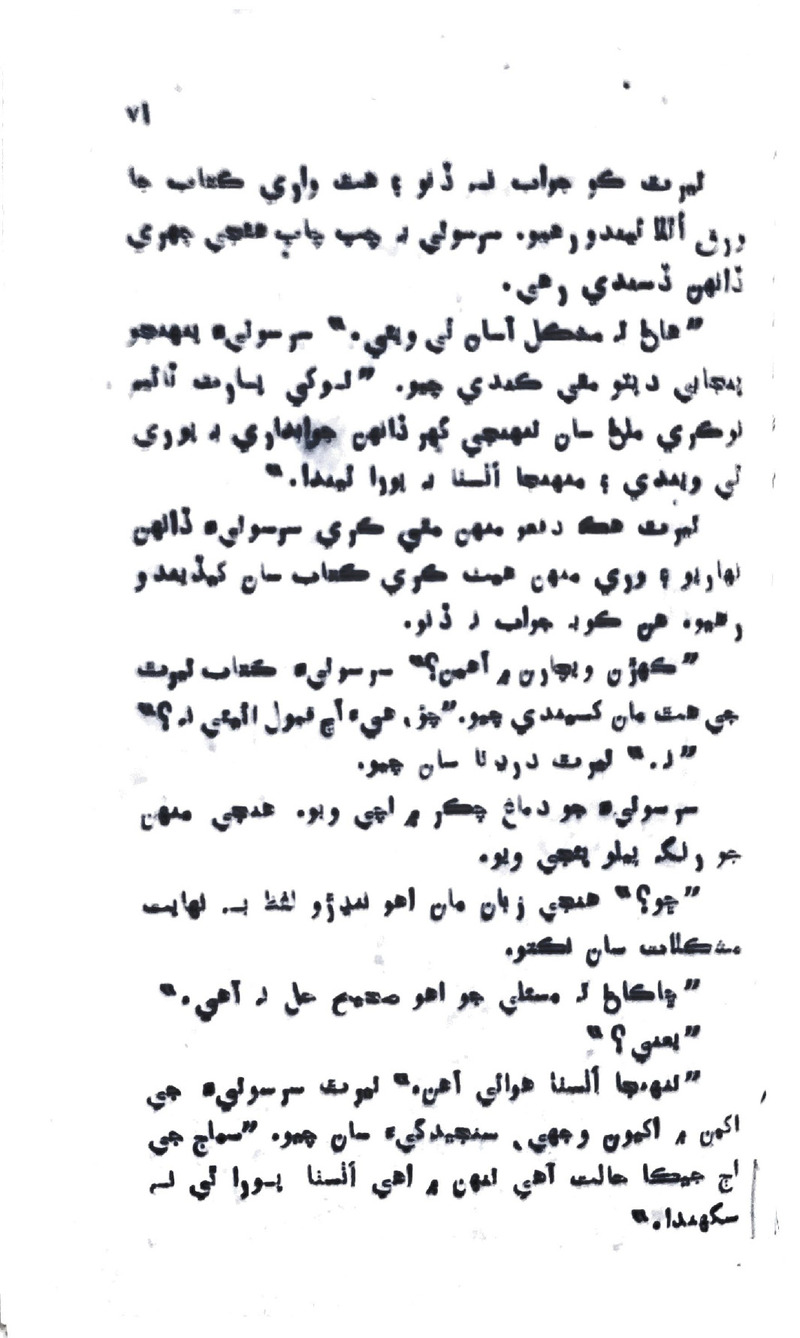 ٧١
تيرٿ ڪو جواب نہ ڏنو ۽ هٿ واري ڪتاب جا
ورق اُٿلائيندو رهيو. سرسوتي بہ چپ چاپ هنجي چهري
ڏانهن ڏسندي رهي.
”هاڻ تہ مشڪل آسان ٿي ويئي.“ سرسوتيءَ پنهنجو
پنجابي دپٽو مٿي ڪندي چيو. ”توکي ڀارت ٽائيمس
نوڪري ملڻ سان تنهنجي گهر ڏانهن جوابداري بہ پوري
ٿي ويندي ۽ منهنجا اُتسنا بہ پورا ٿيندا.“
تيرٿ هڪ دفعو منهن مٿي ڪري سرسوتيءَ ڏانهن
نهاريو ۽ وري منهن هيٺ ڪري ڪتاب سان کيڏندو
رهيو. هن ڪوبہ جواب نہ ڏنو.
”ڪهڙن ويچارن ۾ آهين؟“ سرسوتيءَ ڪتاب تيرٿ
جي هٿ مان کسيندي چيو. ”چؤ، هيءَ اڄ قبول اٿيئي نہ؟“
”نہ.“ تيرٿ درڍتا سان چيو.
سرسوتيءَ جو دماغ چڪر ۾ اچي ويو. هنجي منهن
جو رنگ پيلو پئجي ويو.
”ڇو؟“ هنجي زبان مان اهو ننڍڙو لفظ بہ نهايت
مشڪلات سان نڪتو.
”ڇاڪاڻ تہ مسئلي جو اهو صحيح حل نہ آهي.“
”يعني؟“
”تنهنجا اُتسنا هوائي آهن.“ تيرٿ سرسوتيءَ جي
اکين ۾ اکيون وجهي، سنجيدگيءَ سان چيو. ”سماج جي
اڄ جيڪا حالت آهي تنهن ۾ اهي اُتسنا پورا ٿي نہ
سگهندا.“